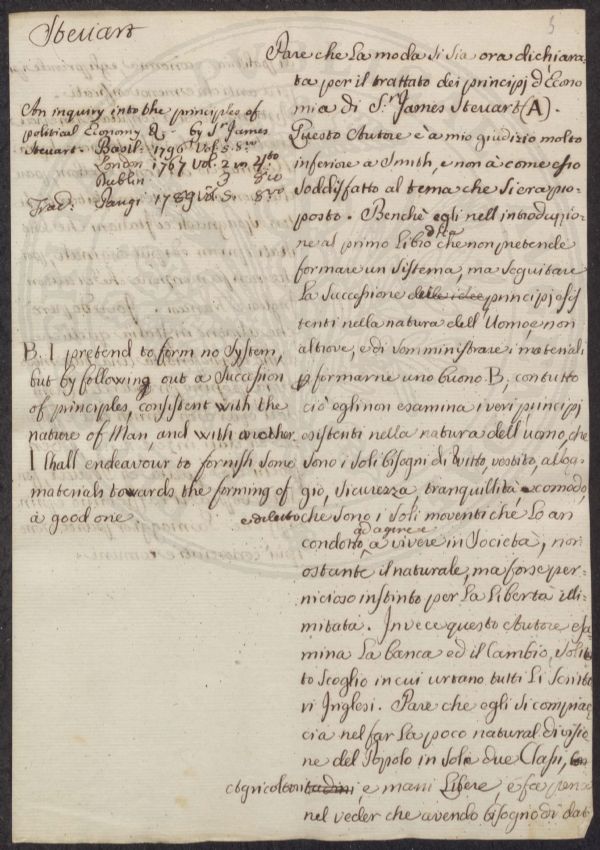 Steuart
5
An inquiry into the principles of
political Economy &. by Sr. James
Steuart. Basil: 1796 Vol: 5. 8vo
London 1767 Vol: 2 in 4to
Dublin 3 8vo
Trad: Parigi 1789 Vol: 5. 8vo
B. I pretend to form no System,
but by following out a Succession
of principles, consistent with the
nature of Man, and with another
I shall endeavour to fornish some
materials towards the forming of
a good one.
Pare che La moda si sia ora dichiara=
ta per il trattato dei principj d'Econo
mia di Sr. James Steuart (A).
Questo Autore è à mio giudizio molto
inferiore a Smith, e non à come esso
soddisfatto al tema che si era pro=
posto. Benchè egli nell'introduzio=
ne al primo Libro dica che non pretende
formare un Sistema, ma seguitare
La Successione delle idee principj esis
tenti nella natura dell'Uomo, e non
altrove, e di somministrare i materiali
p formarne uno buono. B, con tutto
ciò egli non esamina i veri principj
esistenti nella natura dell'uomo, che
sono i soli bisogni di vitto, vestito, allog=
gio, sicurezza, tranquillità comodo,
e diletto che sono i soli moventi che Lo an
condotto, ad agire e à vivere in Società, non
ostante il naturale, ma forse per=
nicioso instinto per La Libertà illi=
mitata. Invece questo Autore esa
mina La banca ed il Cambio, soli=
to scoglio in cui urtano tutti Li Scritto
ri Inglesi. Pare che egli si compiac=
cia nel far La poco natural divisio
ne del Popolo in sole due Classi,
Agricoltori e mani Libere, e fa pena
nel veder che avendo bisogno di dat